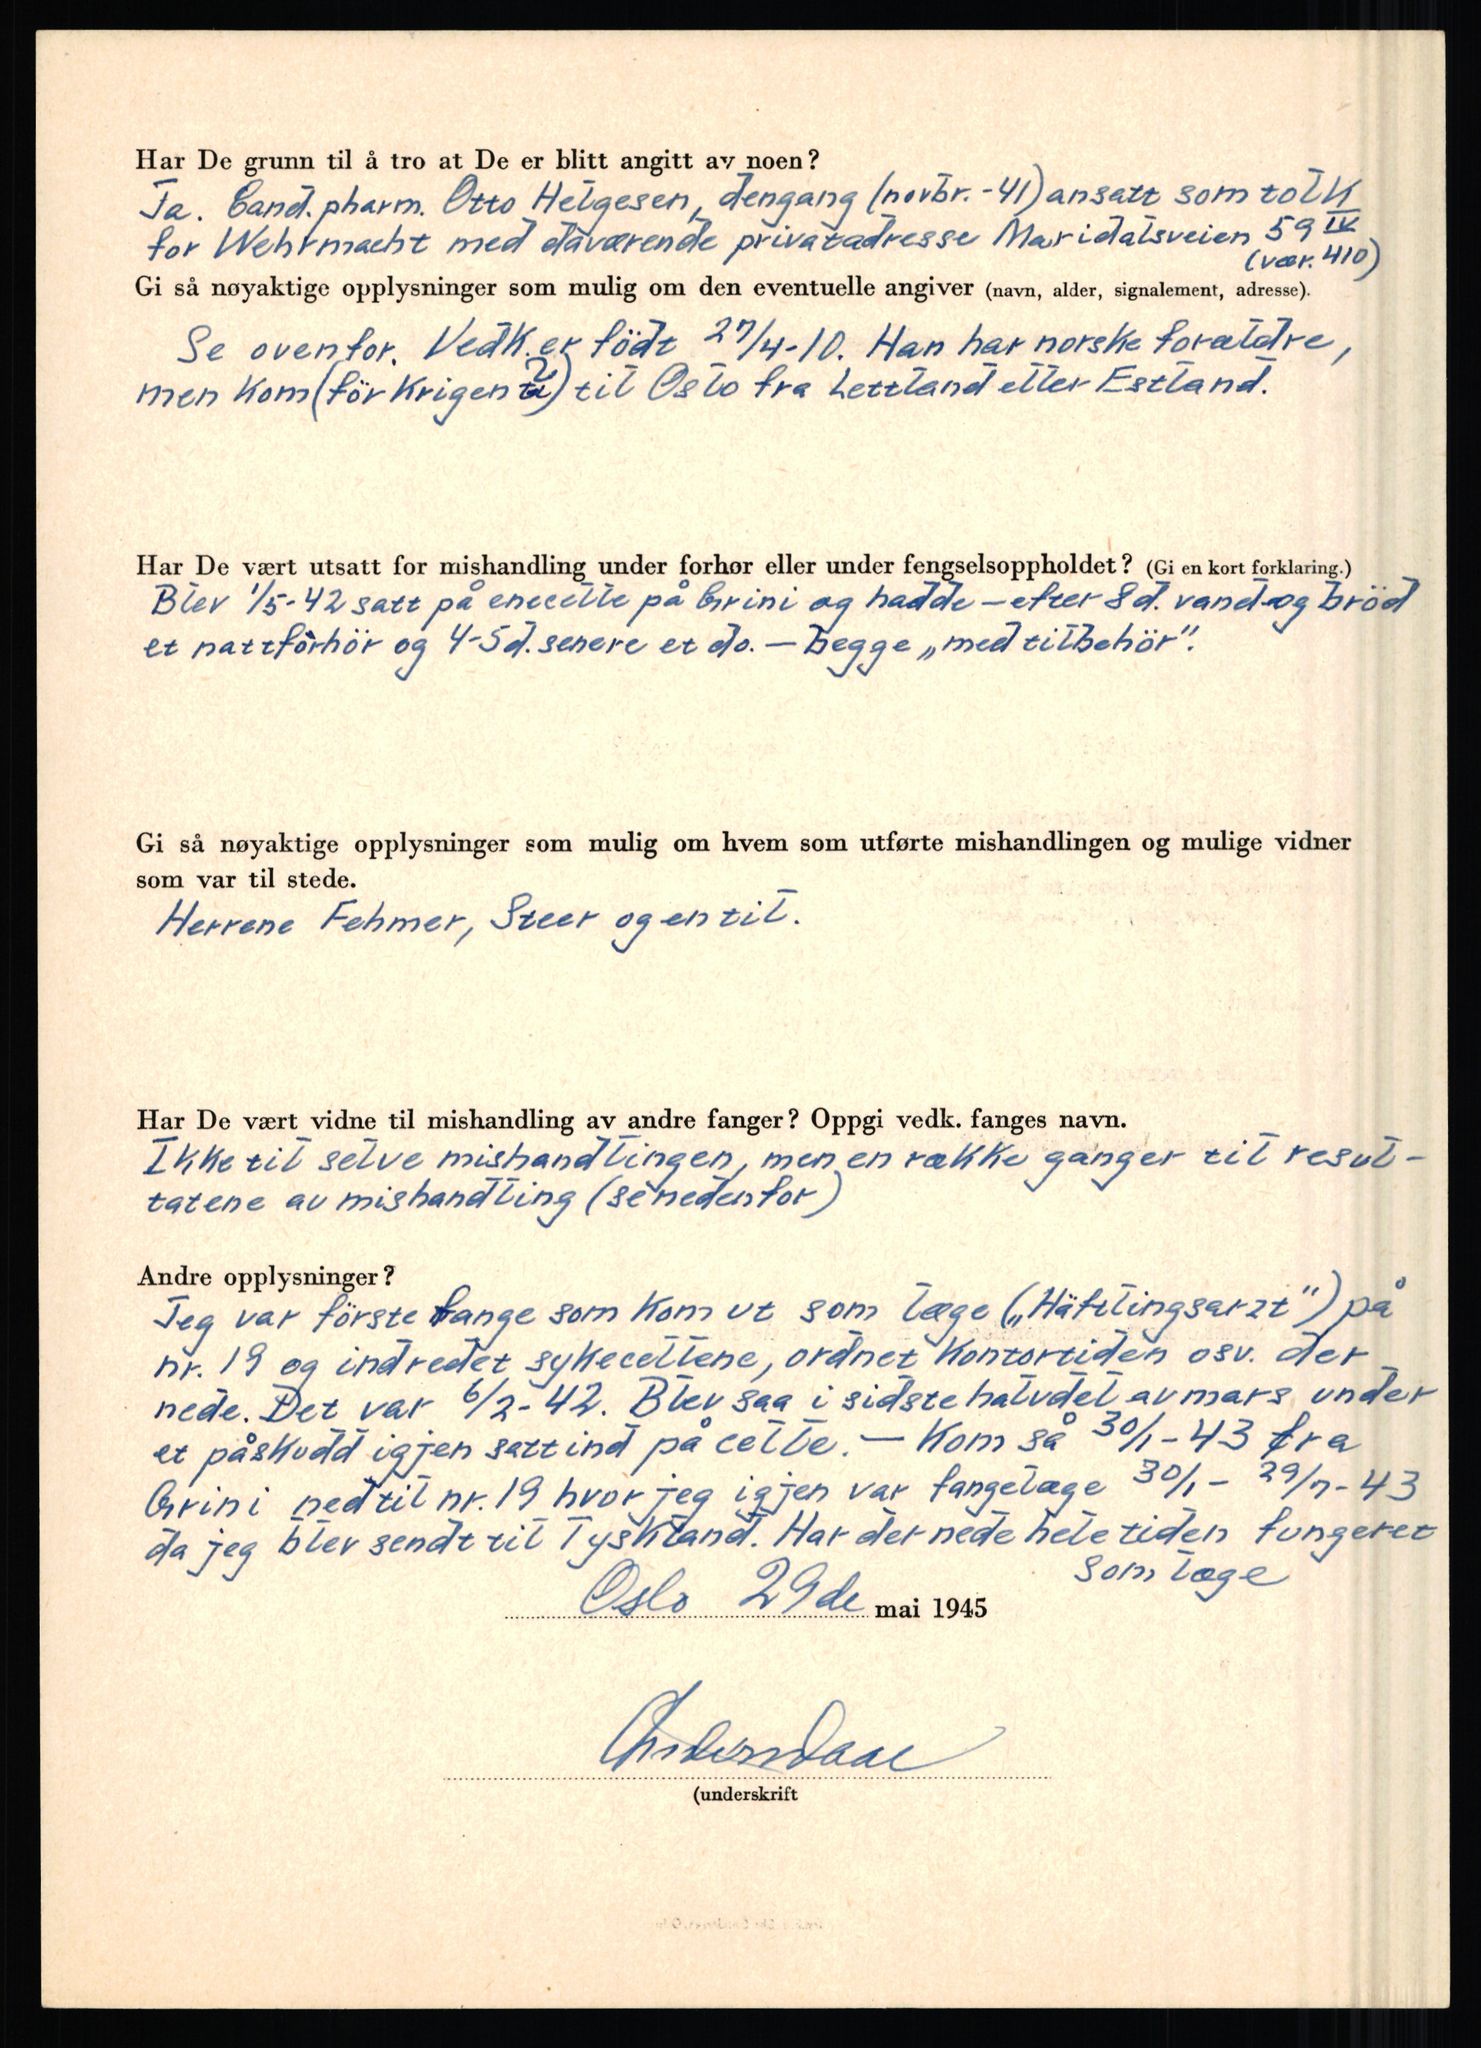 Har De grunn til å tro at De er blitt angitt av noen?
Ja. Cand. pharm. Otto Helgesen, dengang (novbr.-41) ansatt som tolk
for Wehrmacht med daværende privatadresse Maridalsveien 59 IV
(vær. 410)
Gi så nøyaktige opplysninger som mulig om den eventuelle angiver (navn, alder, signalement, adresse).
Se ovenfor. Vedk. er födt 27/4-10. Han har norske forældre,
men kom (för krigen ?) til Oslo fra Lettland eller Estland.
Har De vært utsatt for mishandling under forhør eller under fengselsoppholdet? (Gi en kort forklaring.)
Blev 1/5-42 satt på enecelle på Grini og hadde - efter 8 d. vand og bröd
et nattforhör og 4-5 d. senere et do. - begge „med tilbehör".
Gi så nøyaktige opplysninger som mulig om hvem som utførte mishandlingen og mulige vidner
som var til stede.
Herrene Fehmer, Steer og en til.
Har De vært vidne til mishandling av andre fanger? Oppgi vedk. fanges navn.
Ikke til selve mishandlingen, men en række ganger til resul-
tatene av mishandling (se nedenfor)
Andre opplysninger?
Jeg var förste fange som kom ut som læge („Häftlingsarzt") på
nr. 19 og indredet sykecellene, ordnet kontortiden osv. der
nede. Det var 6/2-42. Blev saa i sidste halvdel av mars under
et påskudd igjen satt ind på celle. - Kom så 30/1-43 fra
Grini ned til nr. 19 hvor jeg igjen var fangelæge 30/1 - 29/7-43
da jeg blev sendt til Tyskland. Har der nede hele tiden fungeret
som læge
Oslo 29de mai 1945
Anders Daae
(underskrift